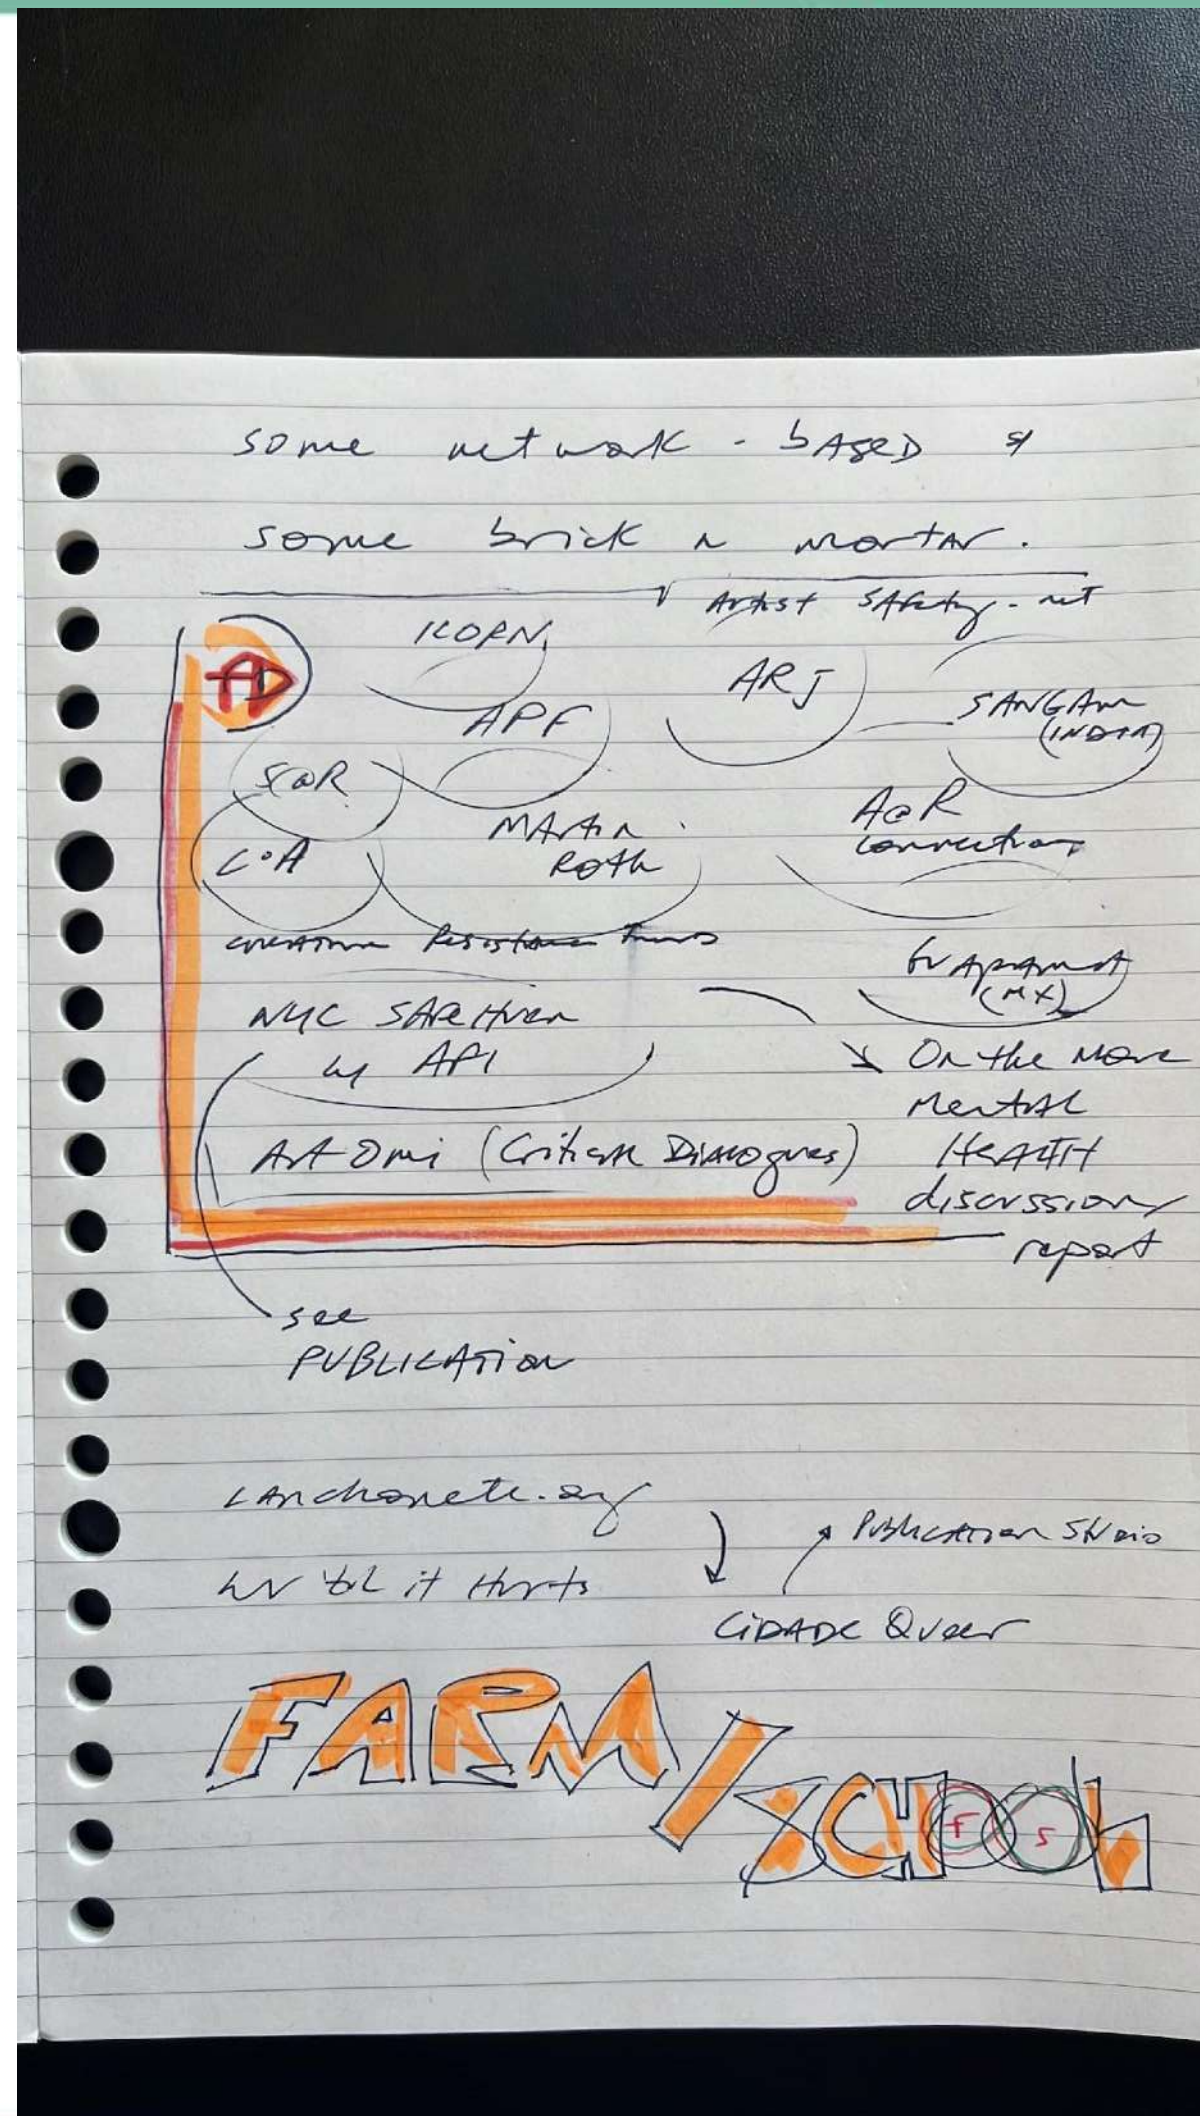 some network - bAseD &
some brick n mortar.
Artist SAfety-net
AD
ICORN
ARJ
SANGAM
(INDIA)
APF
S@R
MArtin
Roth
A@R
Connections
C◦A
Resistance
(MX)
NYC SAfe HAven
by API
On the Move
Mental
HEALTH
discussions
report
Art Omi (Critical Dialogues)
see
PUBLICATION
LAnchonete.org
it Hurts
PUblication Studio
CiDADE Queer
FARM/SCHOOL
F S